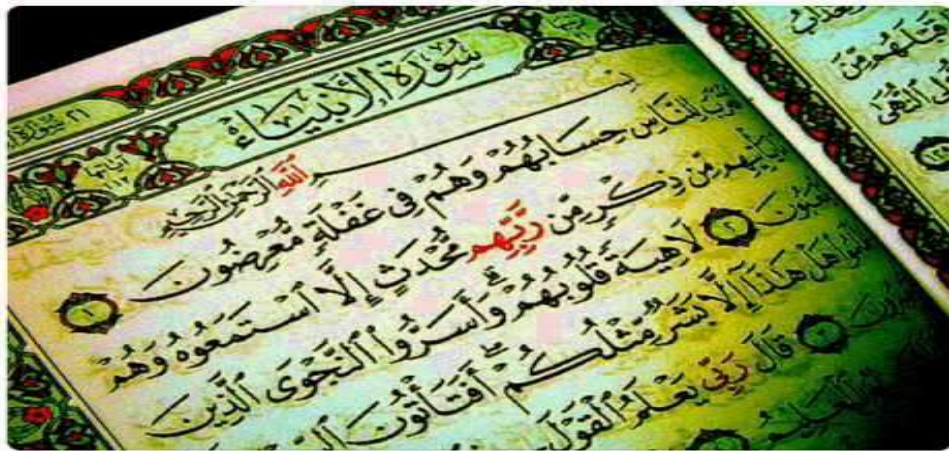 سُورَةُ الْأَنْبِيَاءِ
بِسْمِ ٱللَّهِ ٱلرَّحْمَٰنِ ٱلرَّحِيمِ
لِلنَّاسِ حِسَابُهُمْ وَهُمْ فِى غَفْلَةٍ مُّعْرِضُونَ ١
مِّن ذِكْرٍ مِّن رَّبِّهِم مُّحْدَثٍ إِلَّا ٱسْتَمَعُوهُ وَهُمْ
٢ لَاهِيَةً قُلُوبُهُمْ وَأَسَرُّوا۟ ٱلنَّجْوَى ٱلَّذِينَ
هَلْ هَٰذَآ إِلَّا بَشَرٌ مِّثْلُكُمْ أَفَتَأْتُونَ
٣ قَالَ رَبِّى يَعْلَمُ ٱلْقَوْلَ